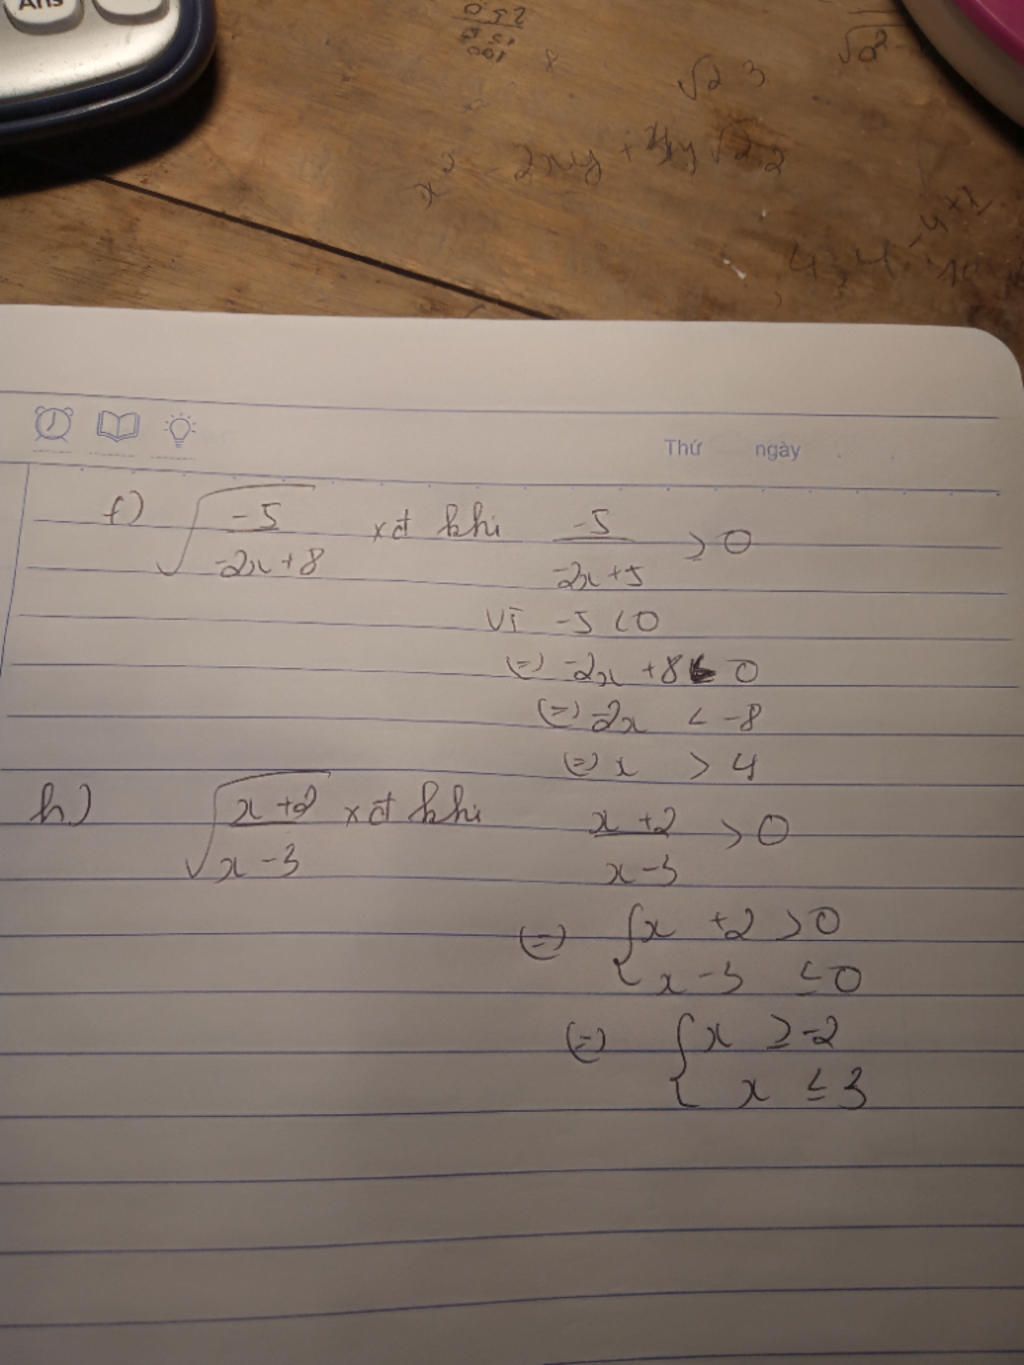 Ans
√2 3
x² - 2xy + 4y √2 2
Thứ ngày
f) √(-5/(-2x+8)) xđ khi -5/(-2x+5) ≥ 0
Vì -5 < 0
(=) -2x + 8 < 0
(=) -2x < -8
(=) x > 4
h) √((x+2)/(x-3)) xđ khi (x+2)/(x-3) > 0
(=) { x + 2 > 0
x - 3 ≤ 0
(=) { x ≥ -2
x ≤ 3